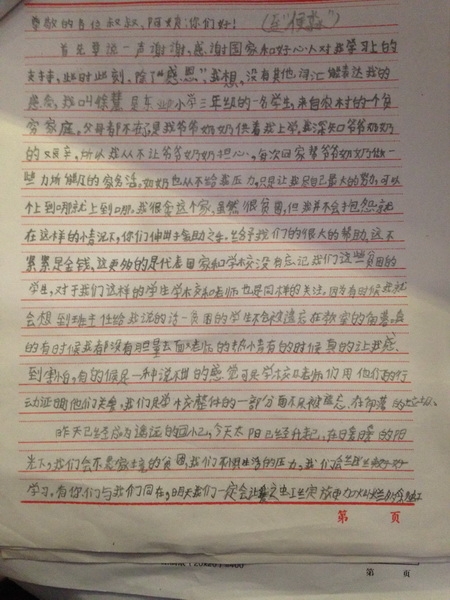 尊敬的各位叔叔、阿姨:你们好!
首先要说一声谢谢,感谢国家和好心人对我学习上的
支持,此时此刻,除了“感恩”,我想,没有其他词汇能表达我的
感受,我叫 是 小学三年级的一名学生,来自农村的一个贫
穷家庭,父母都不在了是我爷爷奶奶供着我上学,我深知爷爷奶奶
的艰辛,所以我从不让爷爷奶奶担心,每次回家帮爷爷奶奶做一
些力所能及的家务活,奶奶也从不给我压力,只是让我尽自己最大的努力,可以
上到哪就上到哪,我很爱这个家,虽然很贫困,但我并不会抱怨
在这样的情况下,你们伸出了援助之手,给予我们的很大的帮助,这不
累累是金钱,这更多的是代表国家和学校没有忘记我们这些贫困的
学生,对于我们这样的学生学校和老师也是同样的关注,因为有时候我就
会想到班主任给我说的话-贫困的学生不会被遗忘在教室的角落,真
的有时候我都没有胆量去面对老师的 有的时候真的让我感
到害怕,有的候是一种说不出的感觉可是学校口老师们用他们的行
动证明他们关爱,我们是学校整体的一部分而不是被遗忘,在部落
昨天已经成为遥远的回忆,今天太阳已经升起,在日暖的阳
光下,我们会不畏家境的贫困,我们不惧生活的压力,我们会 好好
学习,有你们与我们同在,明天我们一定会让
第 页
第 页